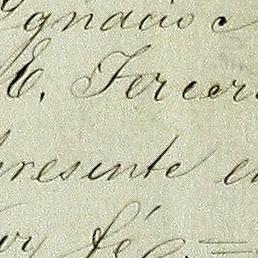 Ignacio
E. Forcer
presente en
fé